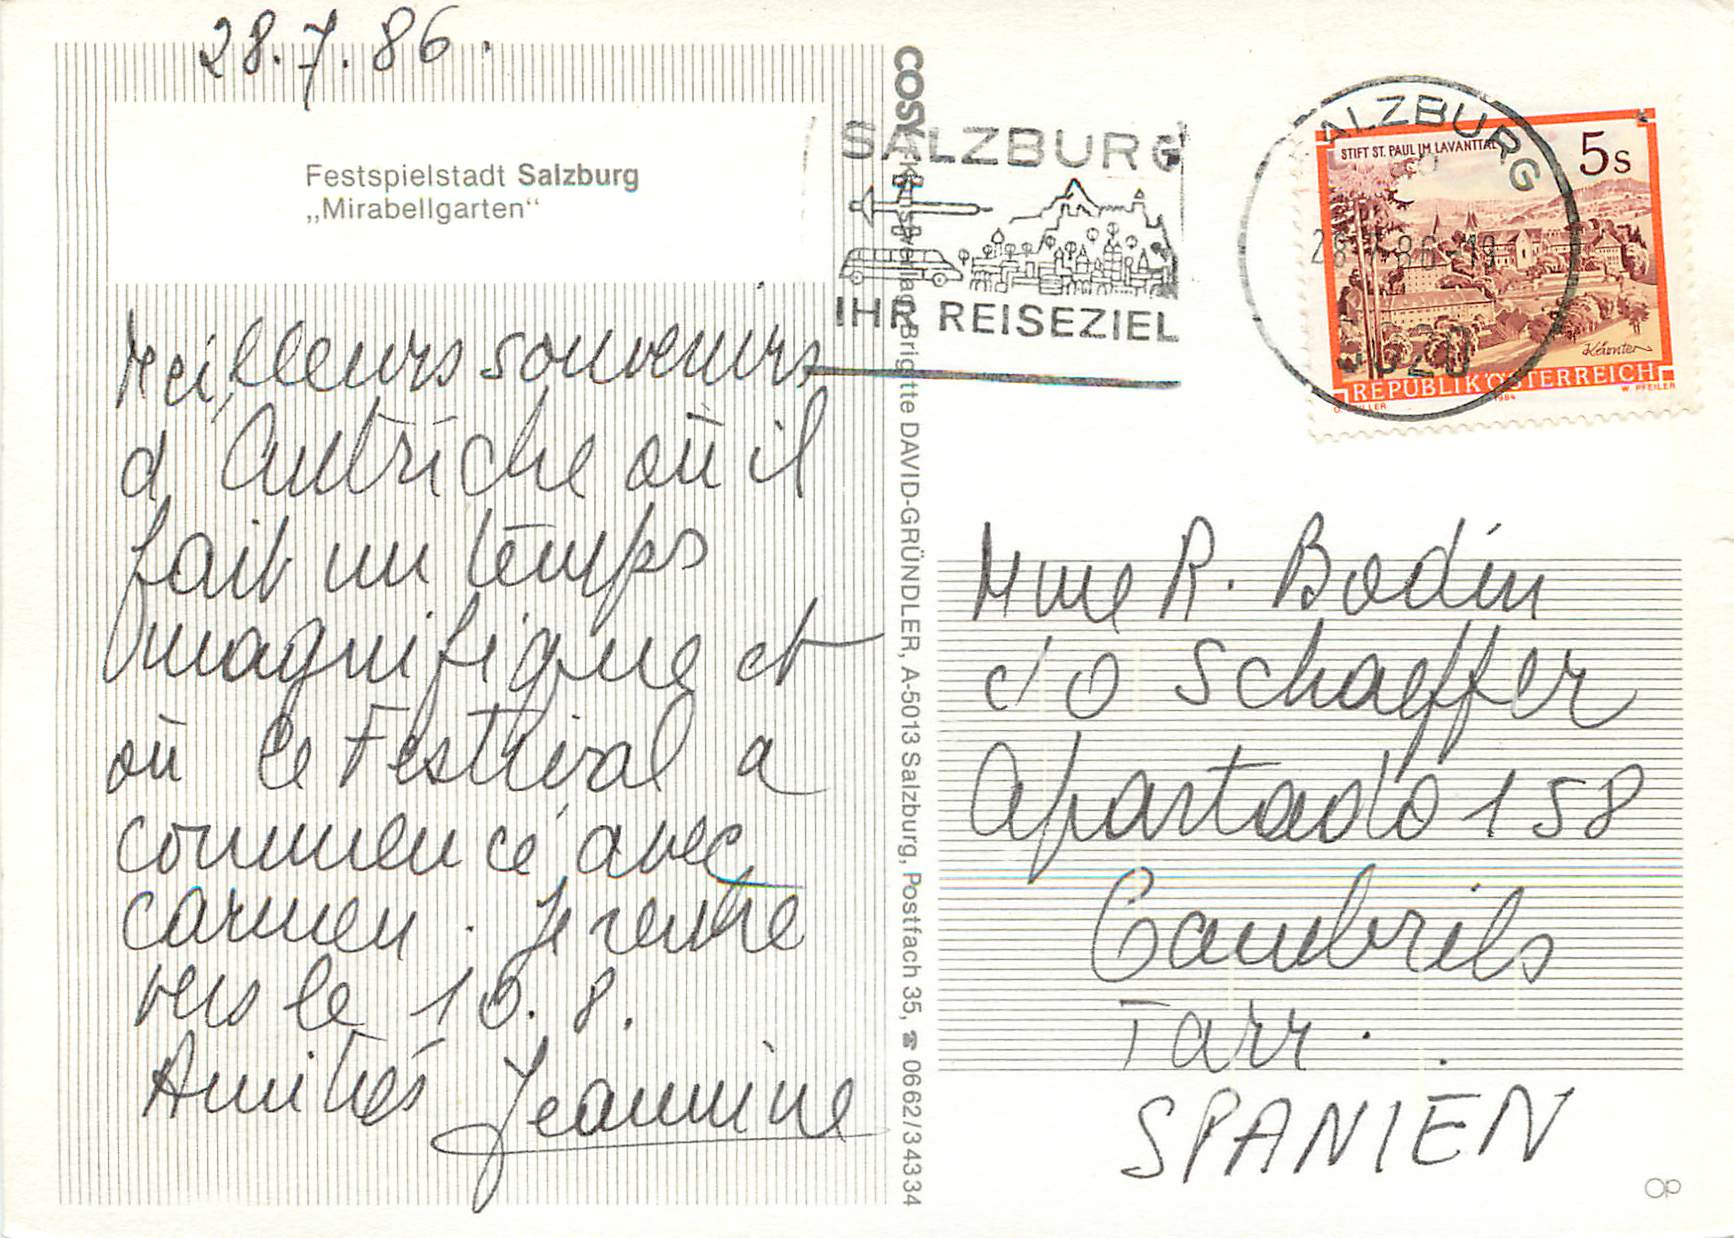 28.7.86.
Festspielstadt Salzburg
„Mirabellgarten“
Meilleurs souvenirs
d'Autriche où il
fait un temps
magnifique et
où le Festival a
commencé avec
Carmen. Je rentre
vers le 10.8.
Amitiés Jeannine
COSY Verlag, Brigitte DAVID-GRÜNDLER, A-5013 Salzburg, Postfach 35, ☎ 0662/34334
SALZBURG
IHR REISEZIEL
SALZBURG
5020
STIFT ST. PAUL IM LAVANTTAL
5s
Kärnten
REPUBLIK ÖSTERREICH
1984
W. PFEILER
Mme R. Bodin
c/o Schaeffer
Apartado 158
Cambrils
Tarr.
SPANIEN